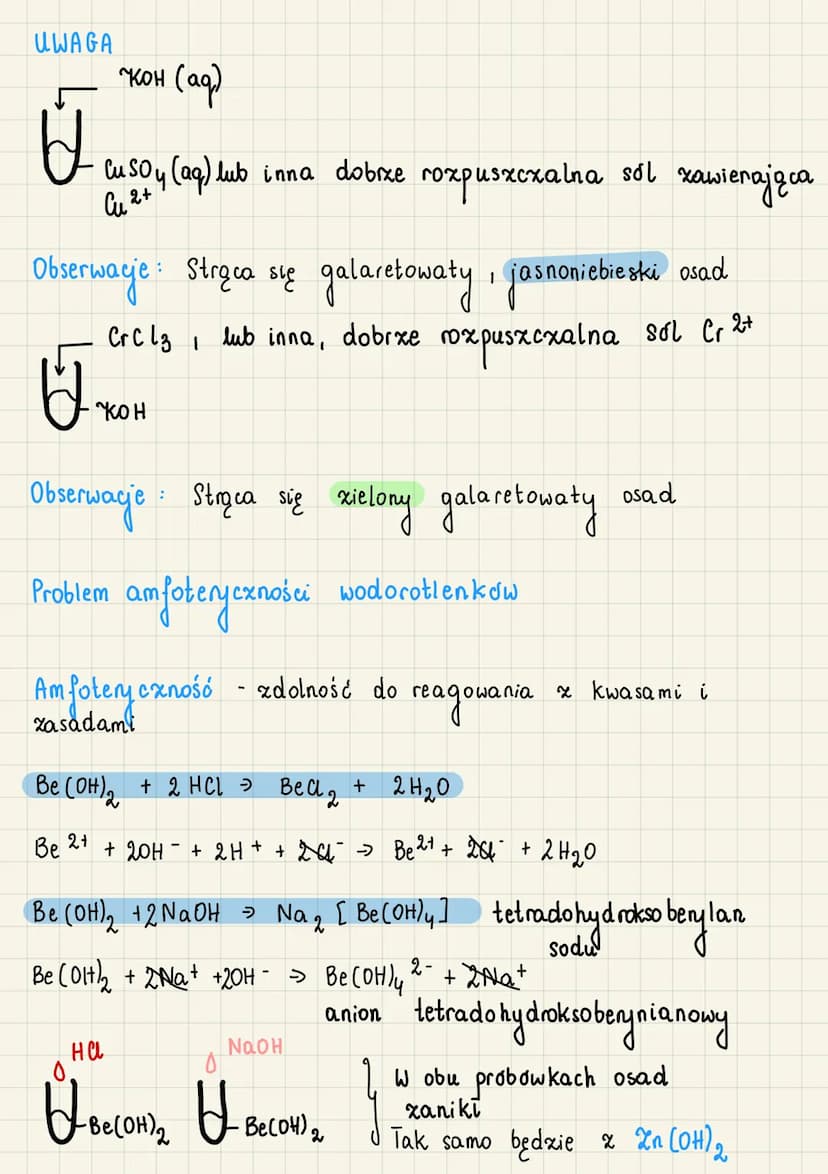 UWAGA
KOH (aq)
CuSO4 (aq) lub inna dobrze rozpuszczalna sól zawierająca
Cu²⁺
Obserwacje: Strąca się galaretowaty, jasnoniebieski osad
CrCl₃, lub inna, dobrze rozpuszczalna sól Cr²⁺
KOH
Obserwacje: Strąca się zielony galaretowaty osad
Problem amfoteryczności wodorotlenków
Amfoteryczność - zdolność do reagowania z kwasami i
zasadami
Be(OH)₂ + 2 HCl → BeCl₂ + 2H₂O
Be²⁺ + 2OH⁻ + 2H⁺ + 2Cl⁻ → Be²⁺ + 2Cl⁻ + 2H₂O
Be(OH)₂ + 2NaOH → Na₂[Be(OH)₄] tetradohydroksoberylan
sodu
Be(OH)₂ + 2Na⁺ + 2OH⁻ → Be(OH)₄²⁻ + 2Na⁺
anion tetradohydroksoberynianowy
HCl
NaOH
Be(OH)₂
Be(OH)₂
W obu probówkach osad
zanikł
Tak samo będzie z Zn(OH)₂